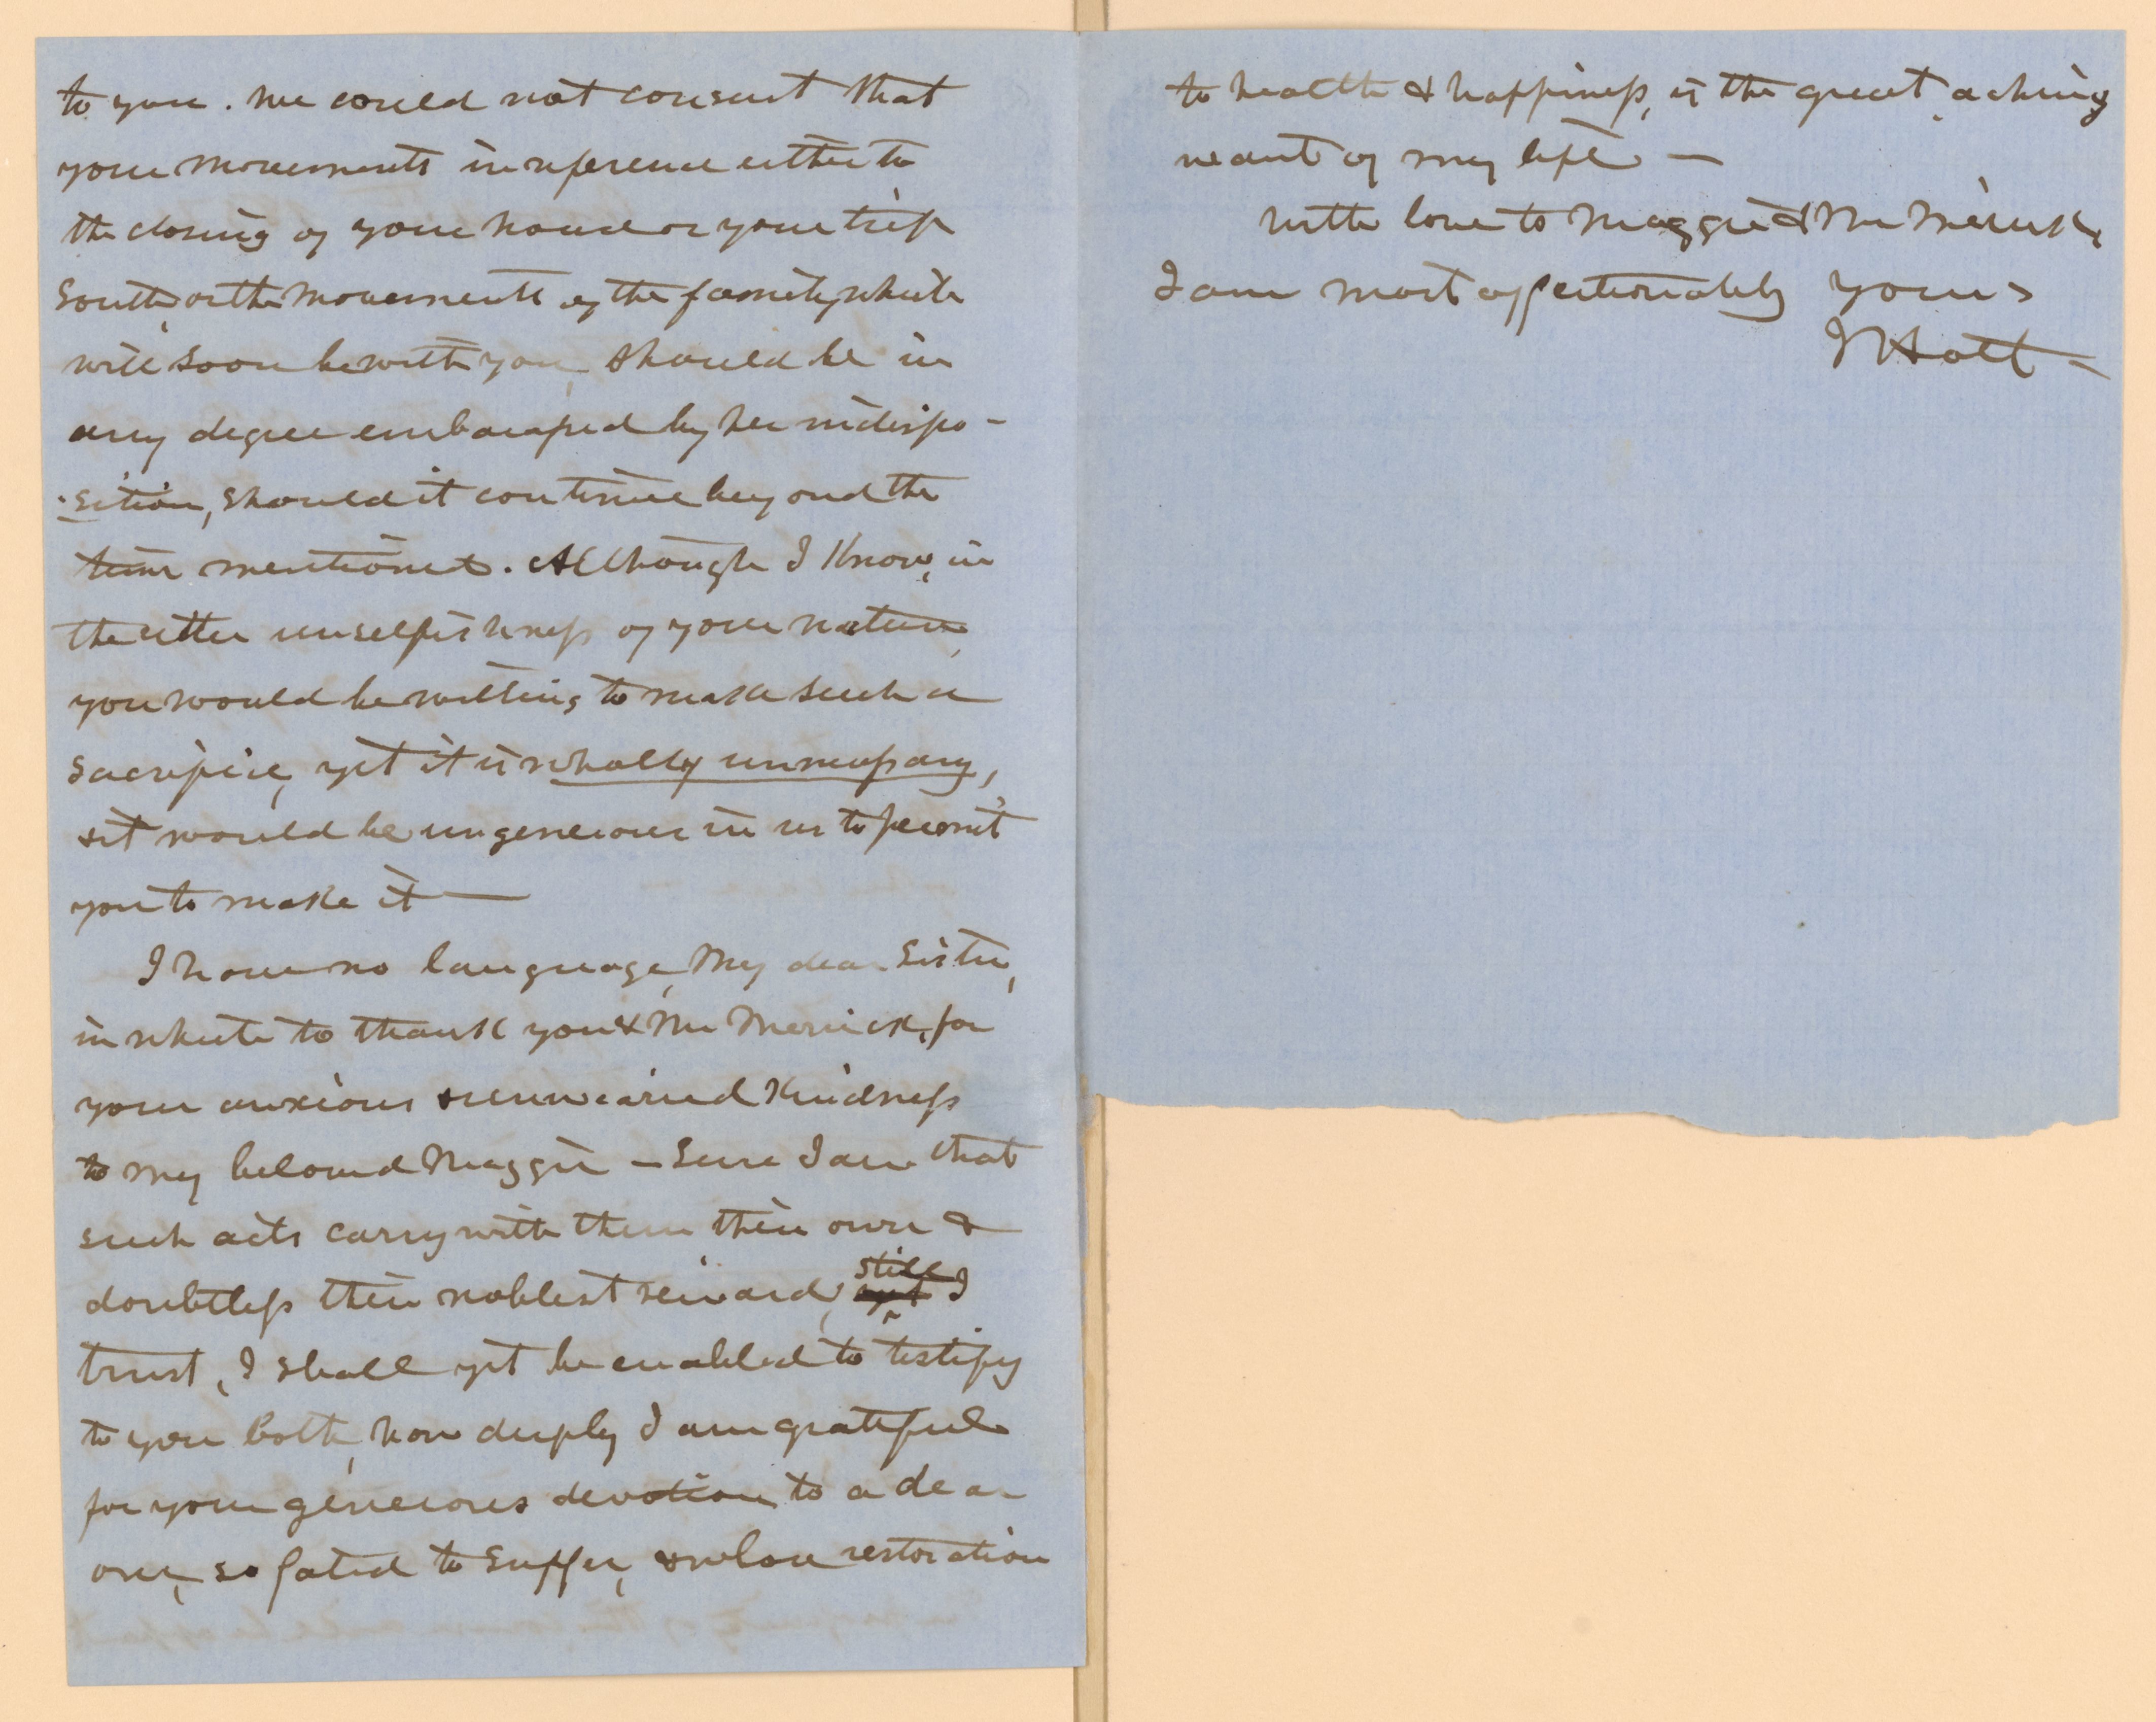 to you. We could not consent that
your movements in reference either to
the closing of your house or your trip
South, or the movements of the family which
will soon be with you, should be in
any degree embarrassed by her indispo-
-sition, should it continue beyond the
time mentioned. Although I know, in
the utter unselfishness of your nature,
you would be willing to make such a
sacrifice, yet it is wholly unnecessary,
& it would be ungenerous in us to permit
you to make it —
I have no language, my dear Sister,
in which to thank you & Mr Merrick, for
your anxious & unwearied kindness
to my beloved Maggie — Sure I am that
such acts carry with them their own &
doubtless their noblest reward, still I
trust, I shall yet be enabled to testify
to you both, how deeply I am grateful
for your generous devotion to a dear
one, so fated to suffer, & whose restoration
to health & happiness, is the great, aching
want of my life —
With love to Maggie & Mr Merrick
I am most affectionately yours
J Holt —